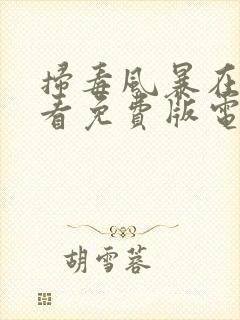 掃毒風暴在
看免費版電
胡雪蓉